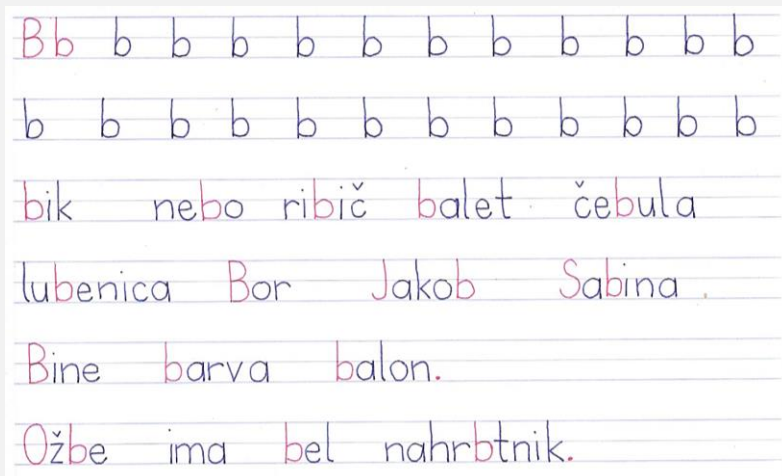 Bb b b b b b b b b b b b
b b b b b b b b b b b b
bik nebo ribič balet čebula
lubenica Bor Jakob Sabina
Bine barva balon.
Ožbe ima bel nahrbtnik.